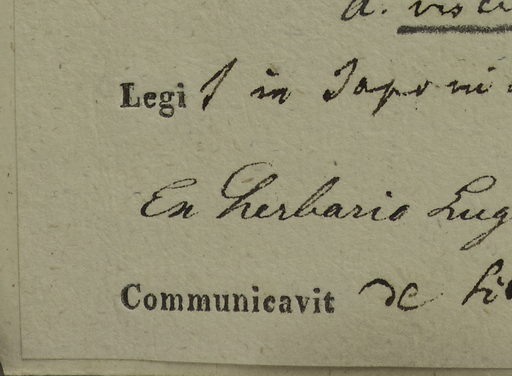 Legi in Japoni
Ex herbario Lug
Communicavit de